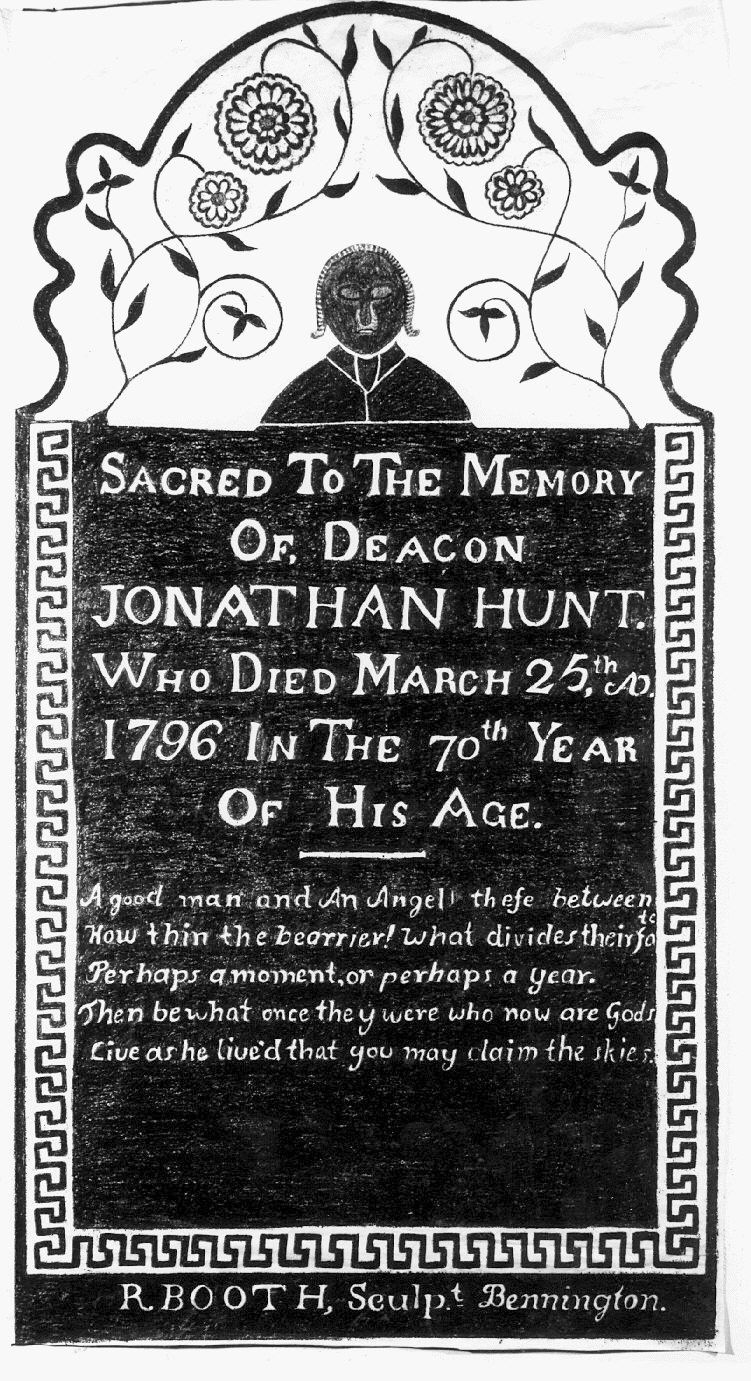 SACRED TO THE MEMORY
OF, DEACON
JONATHAN HUNT.
WHO DIED MARCH 25,th AD.
1796 IN THE 70th YEAR
OF HIS AGE.
A good man and An Angel! theſe between
How thin the bearrier! what divides their fate
Perhaps a moment, or perhaps a year.
Then be what once they were who now are Gods
Live as he live'd that you may claim the skies.
R. BOOTH, Sculp.t Bennington.